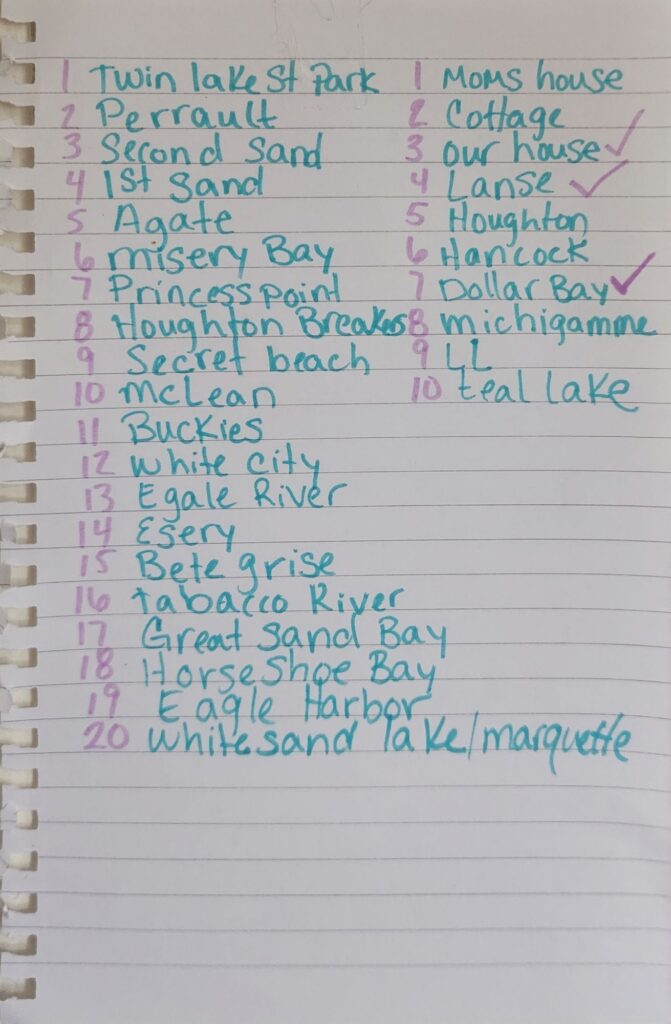 1 Twin lake St Park
2 Perrault
3 Second Sand
4 1st Sand
5 Agate
6 misery Bay
7 Princess point
8 Houghton Breakers
9 Secret beach
10 McLean
11 Buckies
12 white city
13 Egale River
14 Esery
15 Bete grise
16 tabacco River
17 Great Sand Bay
18 Horse Shoe Bay
19 Eagle Harbor
20 white sand lake/marquette
1 Moms house
2 Cottage
3 our house ✓
4 Lanse ✓
5 Houghton
6 Hancock
7 Dollar Bay ✓
8 michigamme
9 LL
10 teal lake